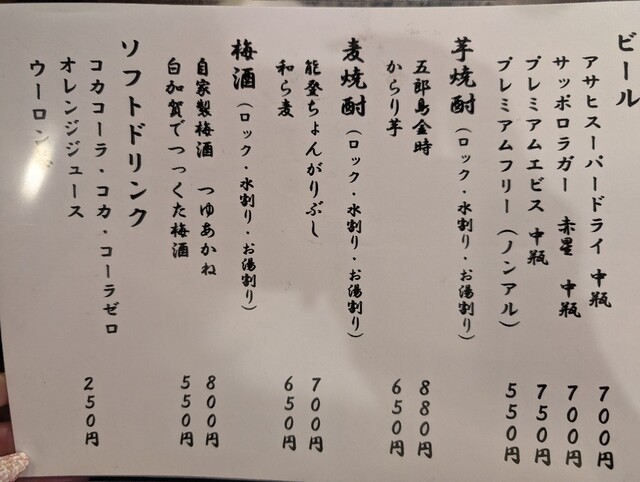 ビール
アサヒスーパードライ 中瓶 700円
サッポロラガー 赤星 中瓶 700円
プレミアムエビス 中瓶 750円
プレミアムフリー(ノンアル) 550円
芋焼酎(ロック・水割り・お湯割り)
五郎島金時 880円
からり芋 650円
麦焼酎(ロック・水割り・お湯割り)
能登ちょんがりぶし 700円
和ら麦 650円
梅酒(ロック・水割り・お湯割り)
自家製梅酒 つゆあかね 800円
白加賀でつっくた梅酒 550円
ソフトドリンク
コカコーラ・コカ・コーラゼロ 250円
オレンジジュース
ウーロン